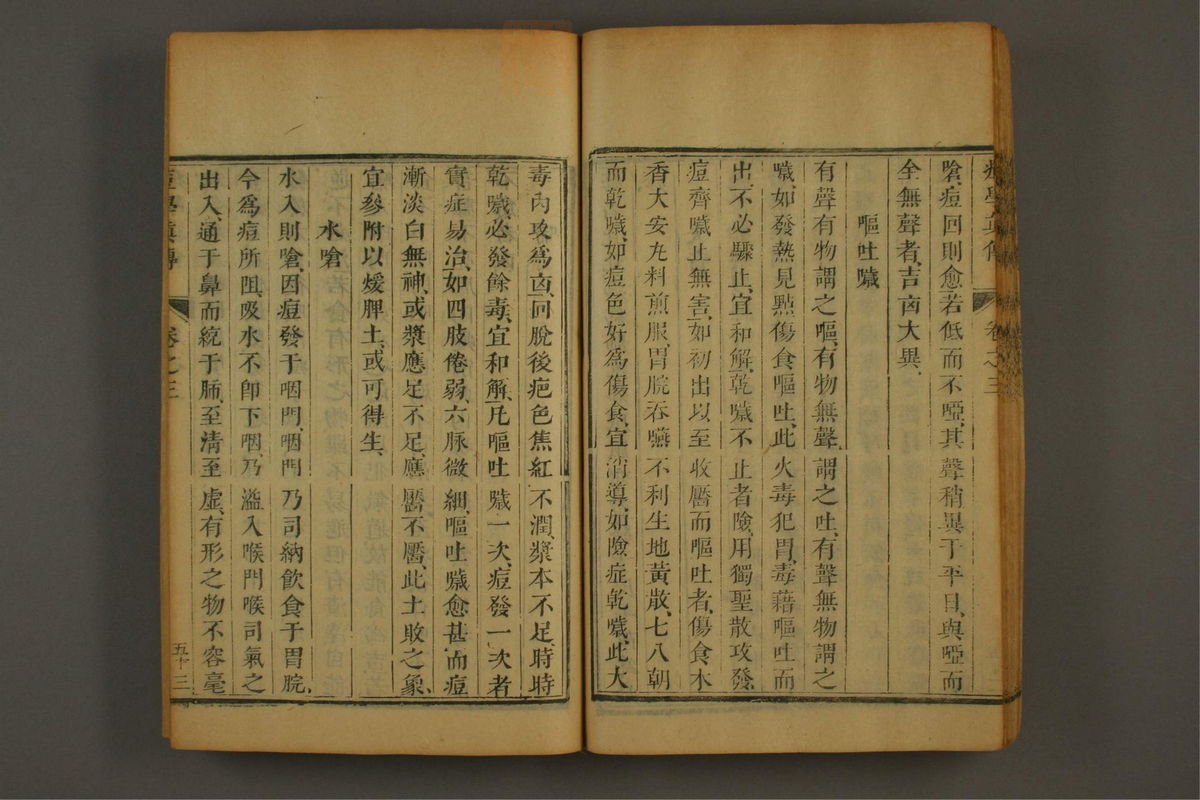 嗆、痘回則愈、若低而不啞、其聲稍異于平日、與啞而
全無聲者、吉凶大異、
嘔吐噦
有聲有物謂之嘔、有物無聲、謂之吐、有聲無物謂之
噦、如發熱見點傷食嘔吐、此火毒犯胃、毒藉嘔吐而
出、不必驟止、宜和解、乾噦不止者險、用獨聖散攻發、
痘齊噦止無害、如初出以至收靨而嘔吐者、傷食木
香大安丸料煎服、胃脘吞嚥不利生地黃散、七八朝
而乾噦、如痘色好爲傷食、宜消導、如險症乾噦、此大
卷之三
毒內攻爲凶、囘脫後疤色焦紅不潤、漿本不足、時時
乾噦、必發餘毒、宜和解、凡嘔吐噦一次、痘發一次者
實症易治、如四肢倦弱、六脉微細、嘔吐噦愈甚、而痘
漸淡白無神、或漿應足不足、應靨不靨、此土敗之象、
宜參附以煖脾土、或可得生、
水嗆
水入則嗆、因痘發于咽門、咽門乃司納飲食于胃脘、
今爲痘所阻、吸水不卽下咽、乃溢入喉門、喉司氣之
出入、通于鼻而統于肺、至淸至虛、有形之物不容毫
痘學眞傳
卷之三
五十三